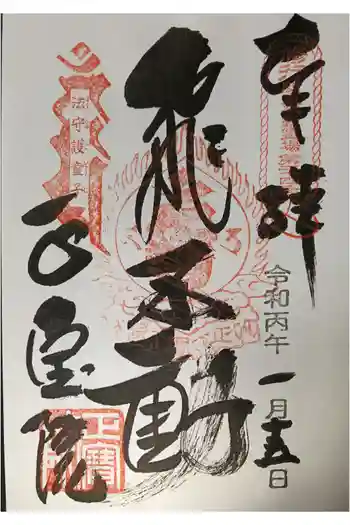 奉拝
飛不動
令和丙午 一月十五日
法守護童子
正宝院
正寶院